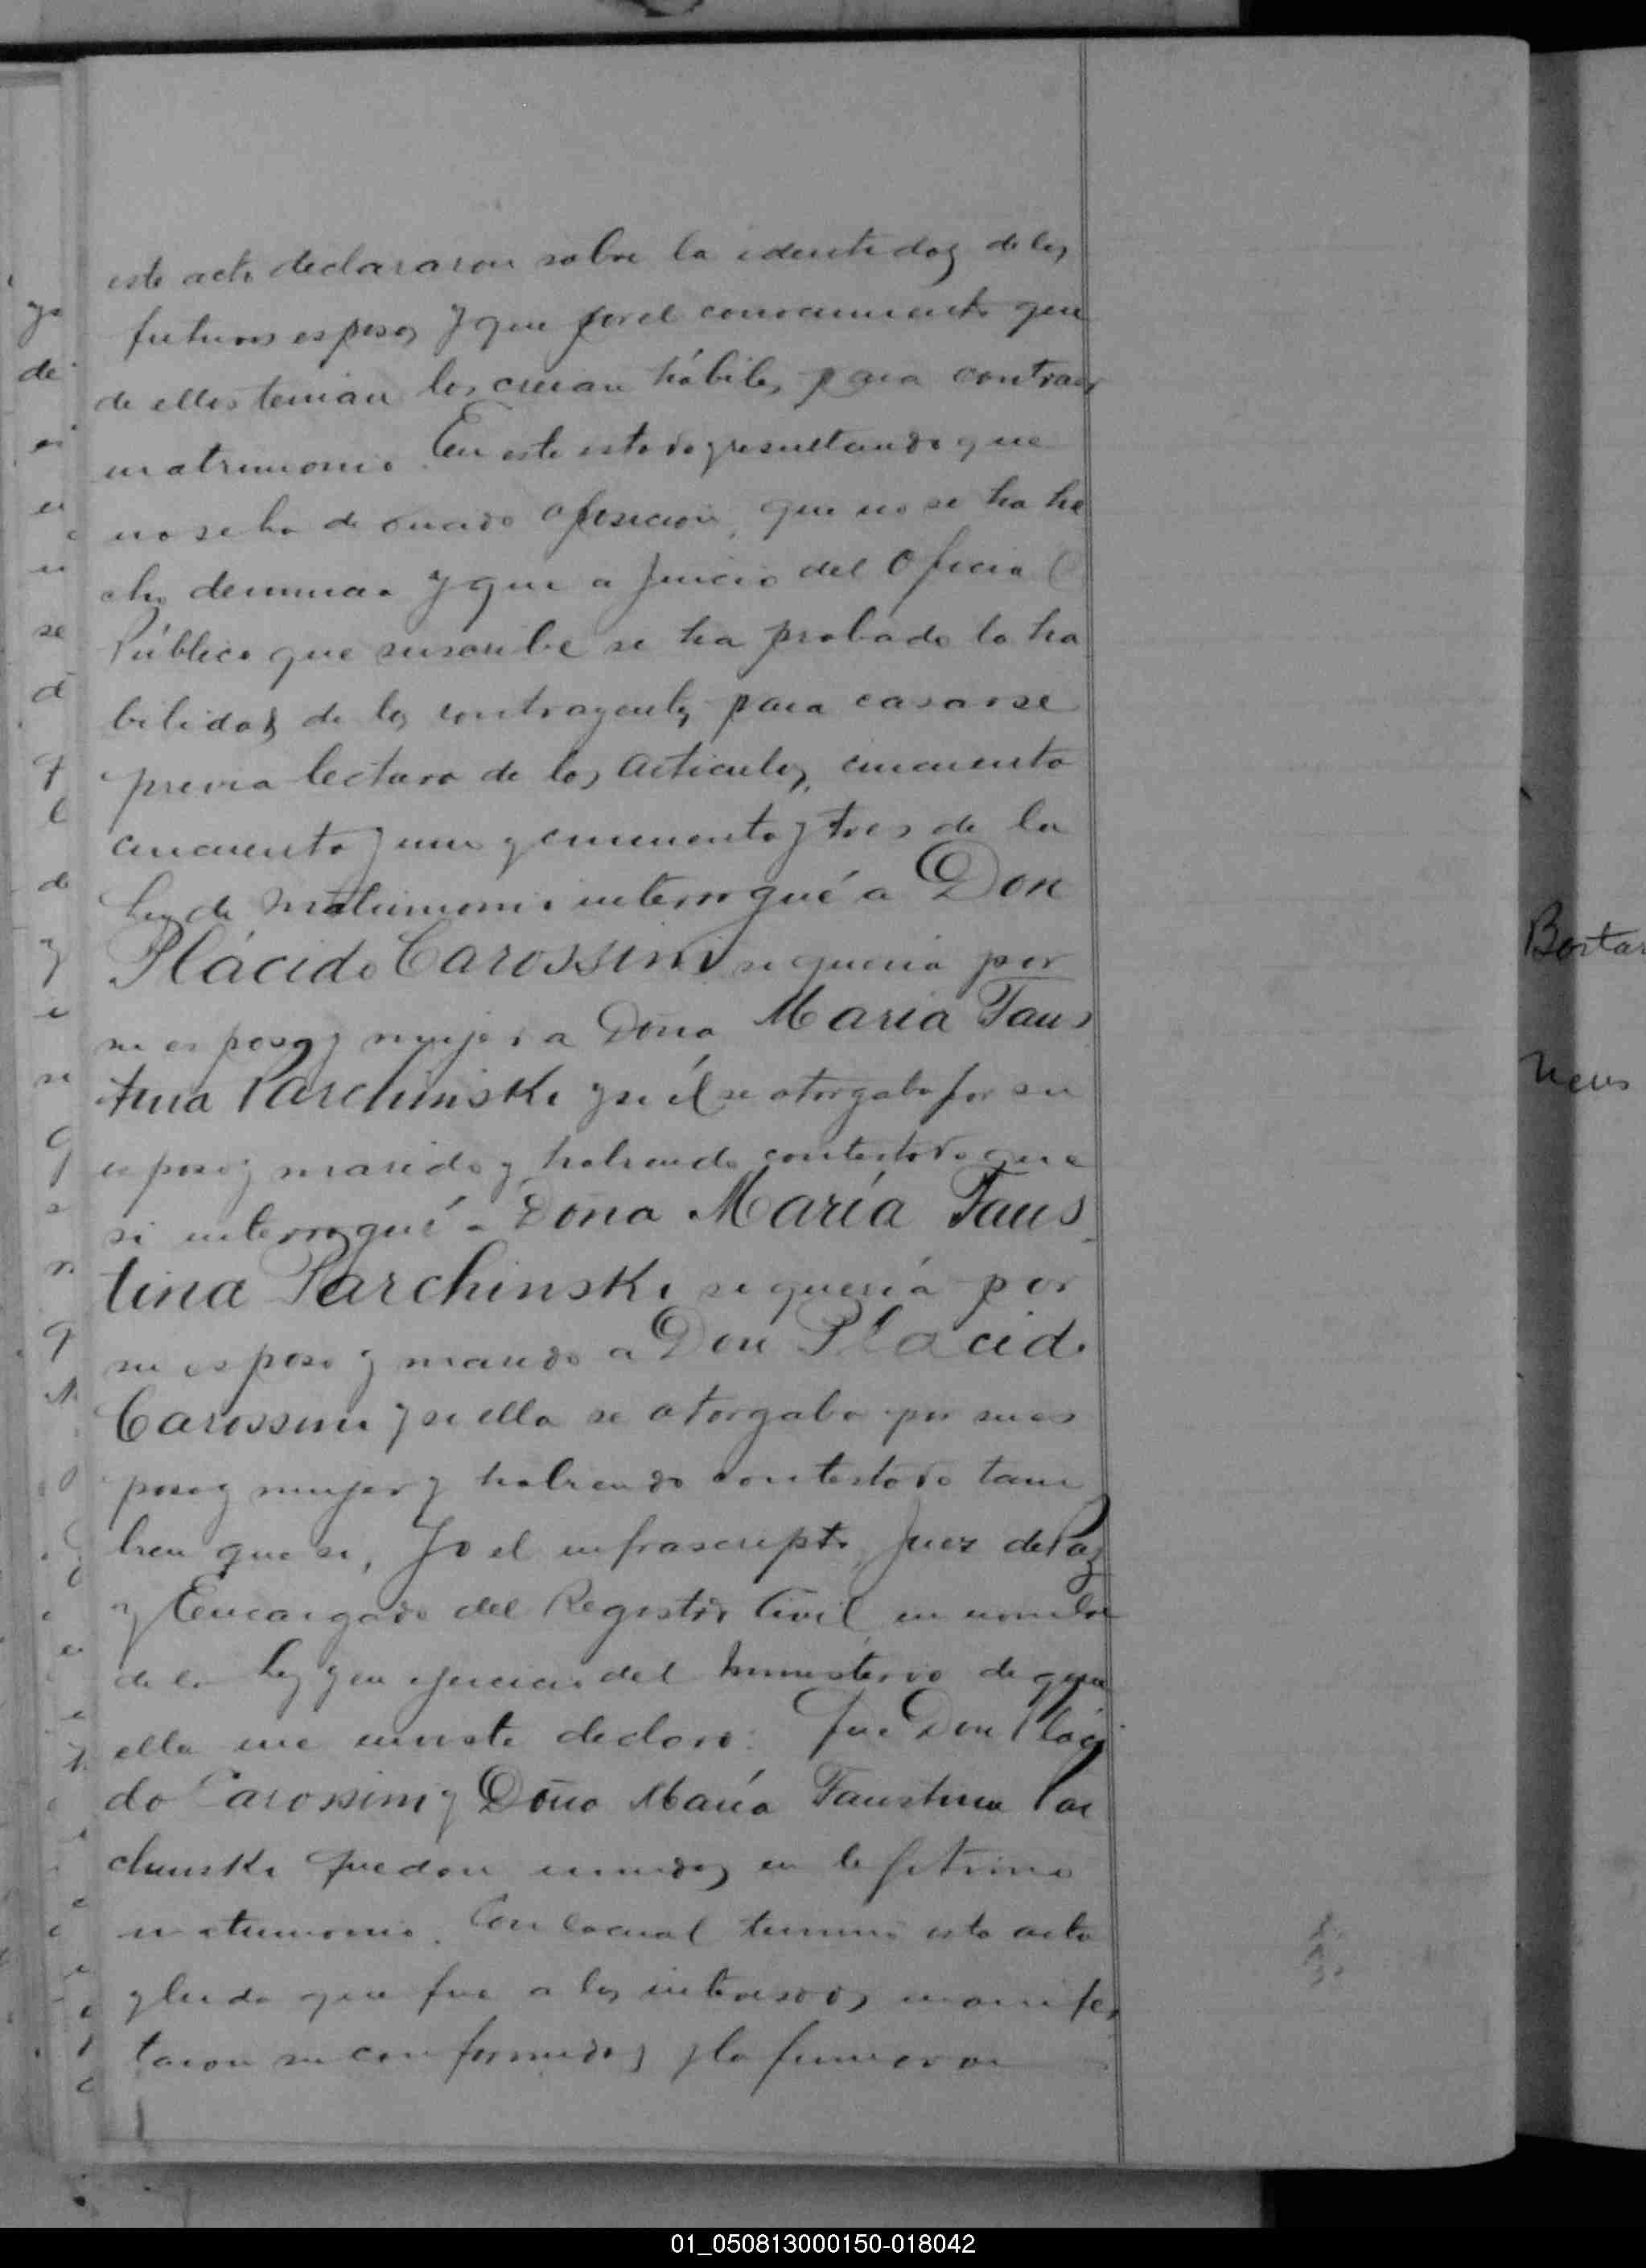 este acto declararon sobre la identidad de los
futuros esposos y que por el conocimiento que
de ellos tenian los creian hábiles para contraer
matrimonio. En este estado y resultando que
no se ha deducido oposicion, que no se ha he
cho denuncia y que a juicio del Oficial
Público que suscribe se ha probado la ha
bilidad de los contrayentes para casarse
previa lectura de los articulos, cincuenta
cincuenta y uno y cincuenta y tres de la
Ley de Matrimonio interrogué a Don
Plácido Carossini si queria por
su esposa y mujer a Doña María Faus
tina Parchinski y si él se otorgaba por su
esposo y marido y habiendo contestado que
si interrogué a Doña María Faus
tina Parchinski si quería por
su esposo y marido a Don Placido
Carossini y si ella se otorgaba por su es
posa y mujer y habiendo contestado tam
bien que si, Yo el infrascripto Juez de Paz
y Encargado del Registro Civil en nombre
de la Ley y en ejercicio del ministerio de que
ella me inviste declaro: Que Don Pláci
do Carossini y Doña María Faustina Par
chinski quedan unidos en lejitimo
matrimonio. Con lo cual terminó esta acta
y leida que fue a los interesados manifes
taron su conformidad y la firmaron
Bortar
01_050813000150-018042